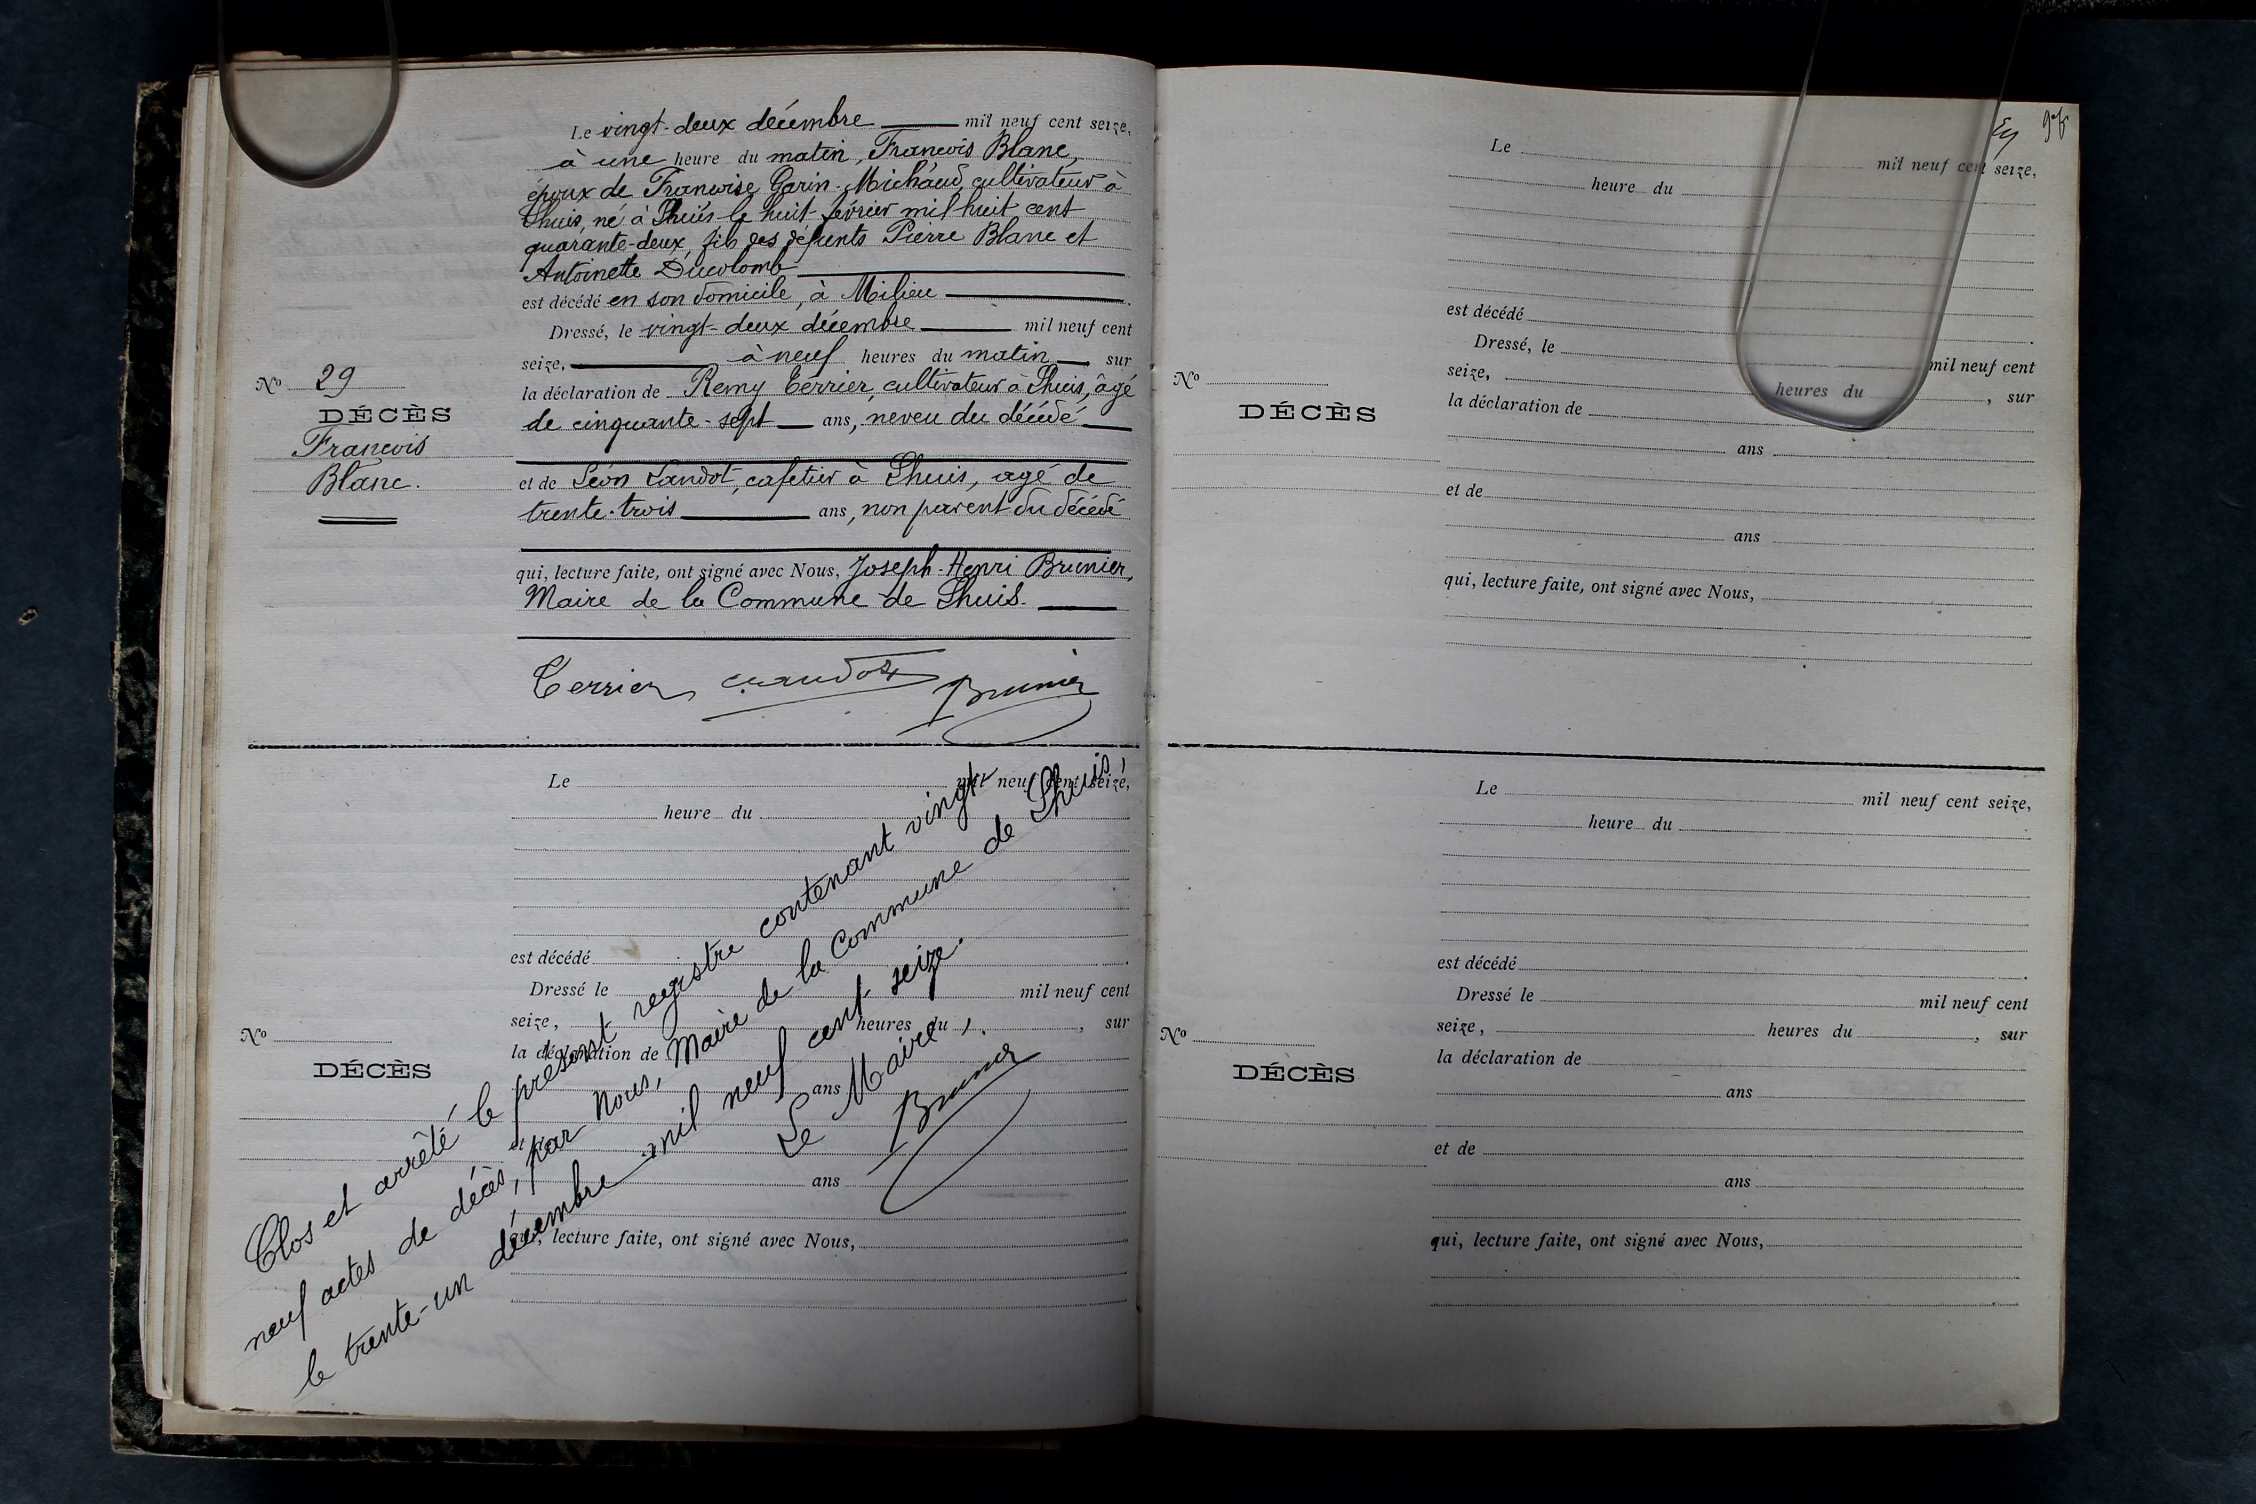 Le vingt-deux décembre mil neuf cent seize,
à une heure du matin, Francois Blanc,
époux de Francoise Garin-Michaud, cultivateur à
Lhuis, né à Lhuis le huit février mil huit cent
quarante-deux, fils des défunts Pierre Blanc et
Antoinette Ducolomb
est décédé en son domicile, à Milieu
Dressé, le vingt-deux décembre mil neuf cent
seize, à neuf heures du matin, sur
la déclaration de Remy Terrier, cultivateur à Lhuis, âgé
de cinquante-sept ans, neveu du décédé
et de Léon Landot, cafetier à Lhuis, agé de
trente-trois ans, non parent du décédé
qui, lecture faite, ont signé avec Nous, Joseph-Henri Brunier,
Maire de la Commune de Lhuis.
Terrier Landot Brunier
No 29
DÉCÈS
Francois
Blanc.
Le mil neuf cent seize,
heure du
est décédé
Dressé le mil neuf cent
seize, heures du , sur
la déclaration de
ans
ans
qui, lecture faite, ont signé avec Nous,
No
DÉCÈS
Clos et arrêté le présent registre contenant vingt-
neuf actes de décès, par Nous, Maire de la Commune de Lhuis,
le trente-un décembre mil neuf cent seize.
Le Maire,
Brunier
Le mil neuf cent seize,
heure du
est décédé
Dressé, le mil neuf cent
seize, heures du , sur
la déclaration de
ans
et de
ans
qui, lecture faite, ont signé avec Nous,
No
DÉCÈS
Le mil neuf cent seize,
heure du
est décédé
Dressé le mil neuf cent
seize, heures du , sur
la déclaration de
ans
et de
ans
qui, lecture faite, ont signé avec Nous,
No
DÉCÈS